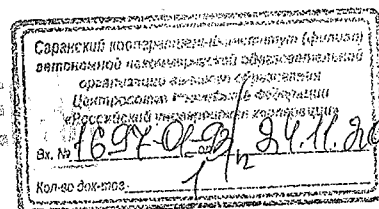 Саранский кооперативный институт (филиал)
автономной некоммерческой образовательной
организации высшего образования
Центросоюза Российской Федерации
«Российский университет кооперации»
Вх. № 1697-01- от 24.11.20
Кол-во док-тов 1